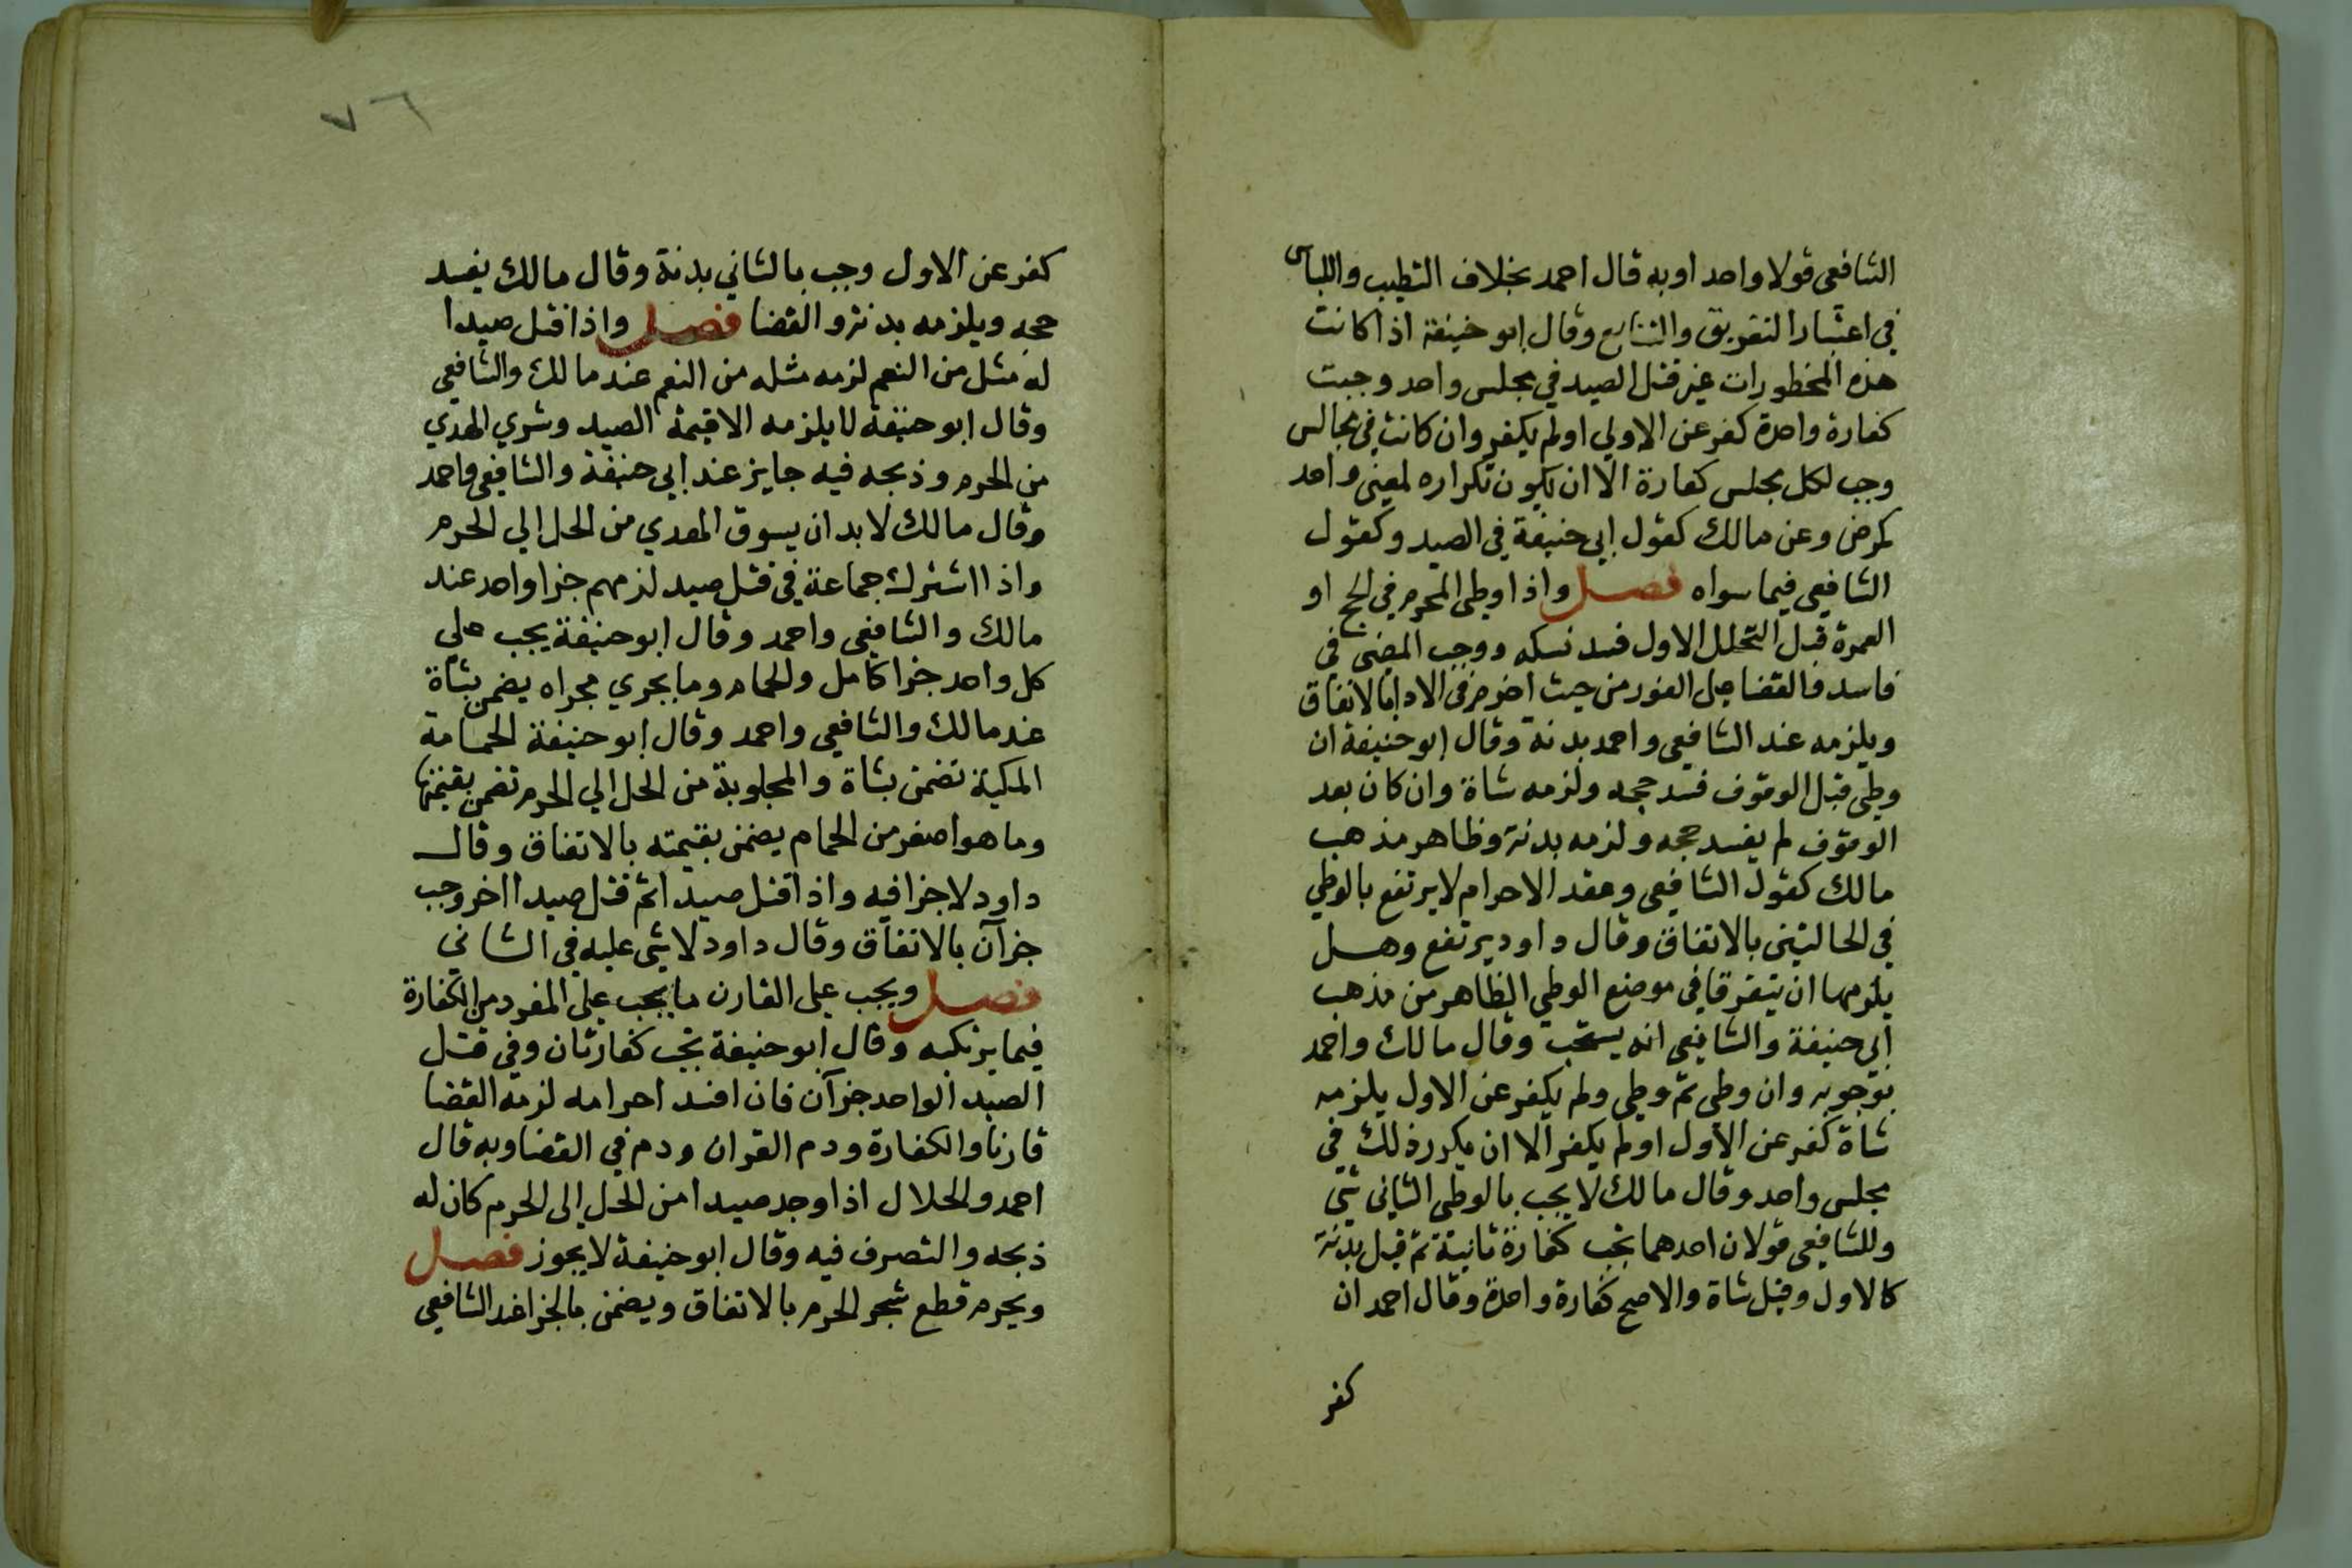 الشافعي قولا واحدا وبه قال احمد بخلاف التطيب واللباس
في اعتبار التفريق والتتابع وقال ابو حنيفة اذا كانت
هذه المخطورات غير قتل الصيد في مجلس واحد وجبت
كفارة واحدة كفر عن الاولي او لم يكفر وان كانت في مجالس
وجب لكل مجلس كفارة الا ان يكون تكراره لمعني واحد
كمرض وعن مالك كقول ابي حنيفة في الصيد وكقول
الشافعي فيما سواه فصل واذا وطي المحرم في الحج او
العمرة قبل التحلل الاول فسد نسكه ووجب المضي في
فاسد فالقضا علي الفور من حيث احرم في الادا بالاتفاق
ويلزمه عند الشافعي واحمد بدنة وقال ابو حنيفة ان
وطي قبل الوقوف فسد حجه ولزمه شاة وان كان بعد
الوقوف لم يفسد حجه ولزمه بدنة وظاهر مذهب
مالك كقول الشافعي وعقد الاحرام لا يرتفع بالوطي
في الحالتين بالاتفاق وقال داود يرتفع وهل
يلزمهما ان يتفرقا في موضع الوطي الظاهر من مذهب
ابي حنيفة والشافعي انه يستحب وقال مالك واحمد
بوجوبه وان وطي ثم وطي ولم يكفر عن الاول يلزمه
شاة كفر عن الاول او لم يكفر الا ان يكرر ذلك في
مجلس واحد وقال مالك لا يجب بالوطي الثاني شي
وللشافعي قولان احدهما تجب كفارة ثانية ثم قيل بدنة
كالاول وقيل شاة والاصح كفارة واحدة وقال احمد ان
كفر
٧٦
كفر عن الاول وجب بالثاني بدنة وقال مالك يفسد
حجه ويلزمه بدنة والقضا فصل واذا قتل صيدا
له مثل من النعم لزمه مثله من النعم عند مالك والشافعي
وقال ابو حنيفة لا يلزمه الا قيمة الصيد وشري الهدي
من الحرم وذبحه فيه جايز عند ابي حنيفة والشافعي واحمد
وقال مالك لا بد ان يسوق الهدي من الحل الي الحرم
واذا اشترك جماعة في قتل صيد لزمهم جزا واحد عند
مالك والشافعي واحمد وقال ابو حنيفة يجب علي
كل واحد جزا كامل والحمام وما يجري مجراه يضمن بشاة
عند مالك والشافعي واحمد وقال ابو حنيفة الحمامة
المكية تضمن بشاة والمجلوبة من الحل الي الحرم تضمن بقيمتها
وما هو اصغر من الحمام يضمن بقيمته بالاتفاق وقال
داود لا جزا فيه واذا قتل صيدا ثم قتل صيدا اخر وجب
جزآن بالاتفاق وقال داود لا شي عليه في الثاني
فصل ويجب علي القارن ما يجب علي المفرد من الكفارة
فيما يرتكبه وقال ابو حنيفة تجب كفارتان وفي قتل
الصيد الواحد جزآن فان افسد احرامه لزمه القضا
قارنا والكفارة ودم القران ودم في القضا وبه قال
احمد والحلال اذا وجد صيدا من الحل الى الحرم كان له
ذبحه والتصرف فيه وقال ابو حنيفة لا يجوز فصل
ويحرم قطع شجر الحرم بالاتفاق ويضمن بالجزا عند الشافعي